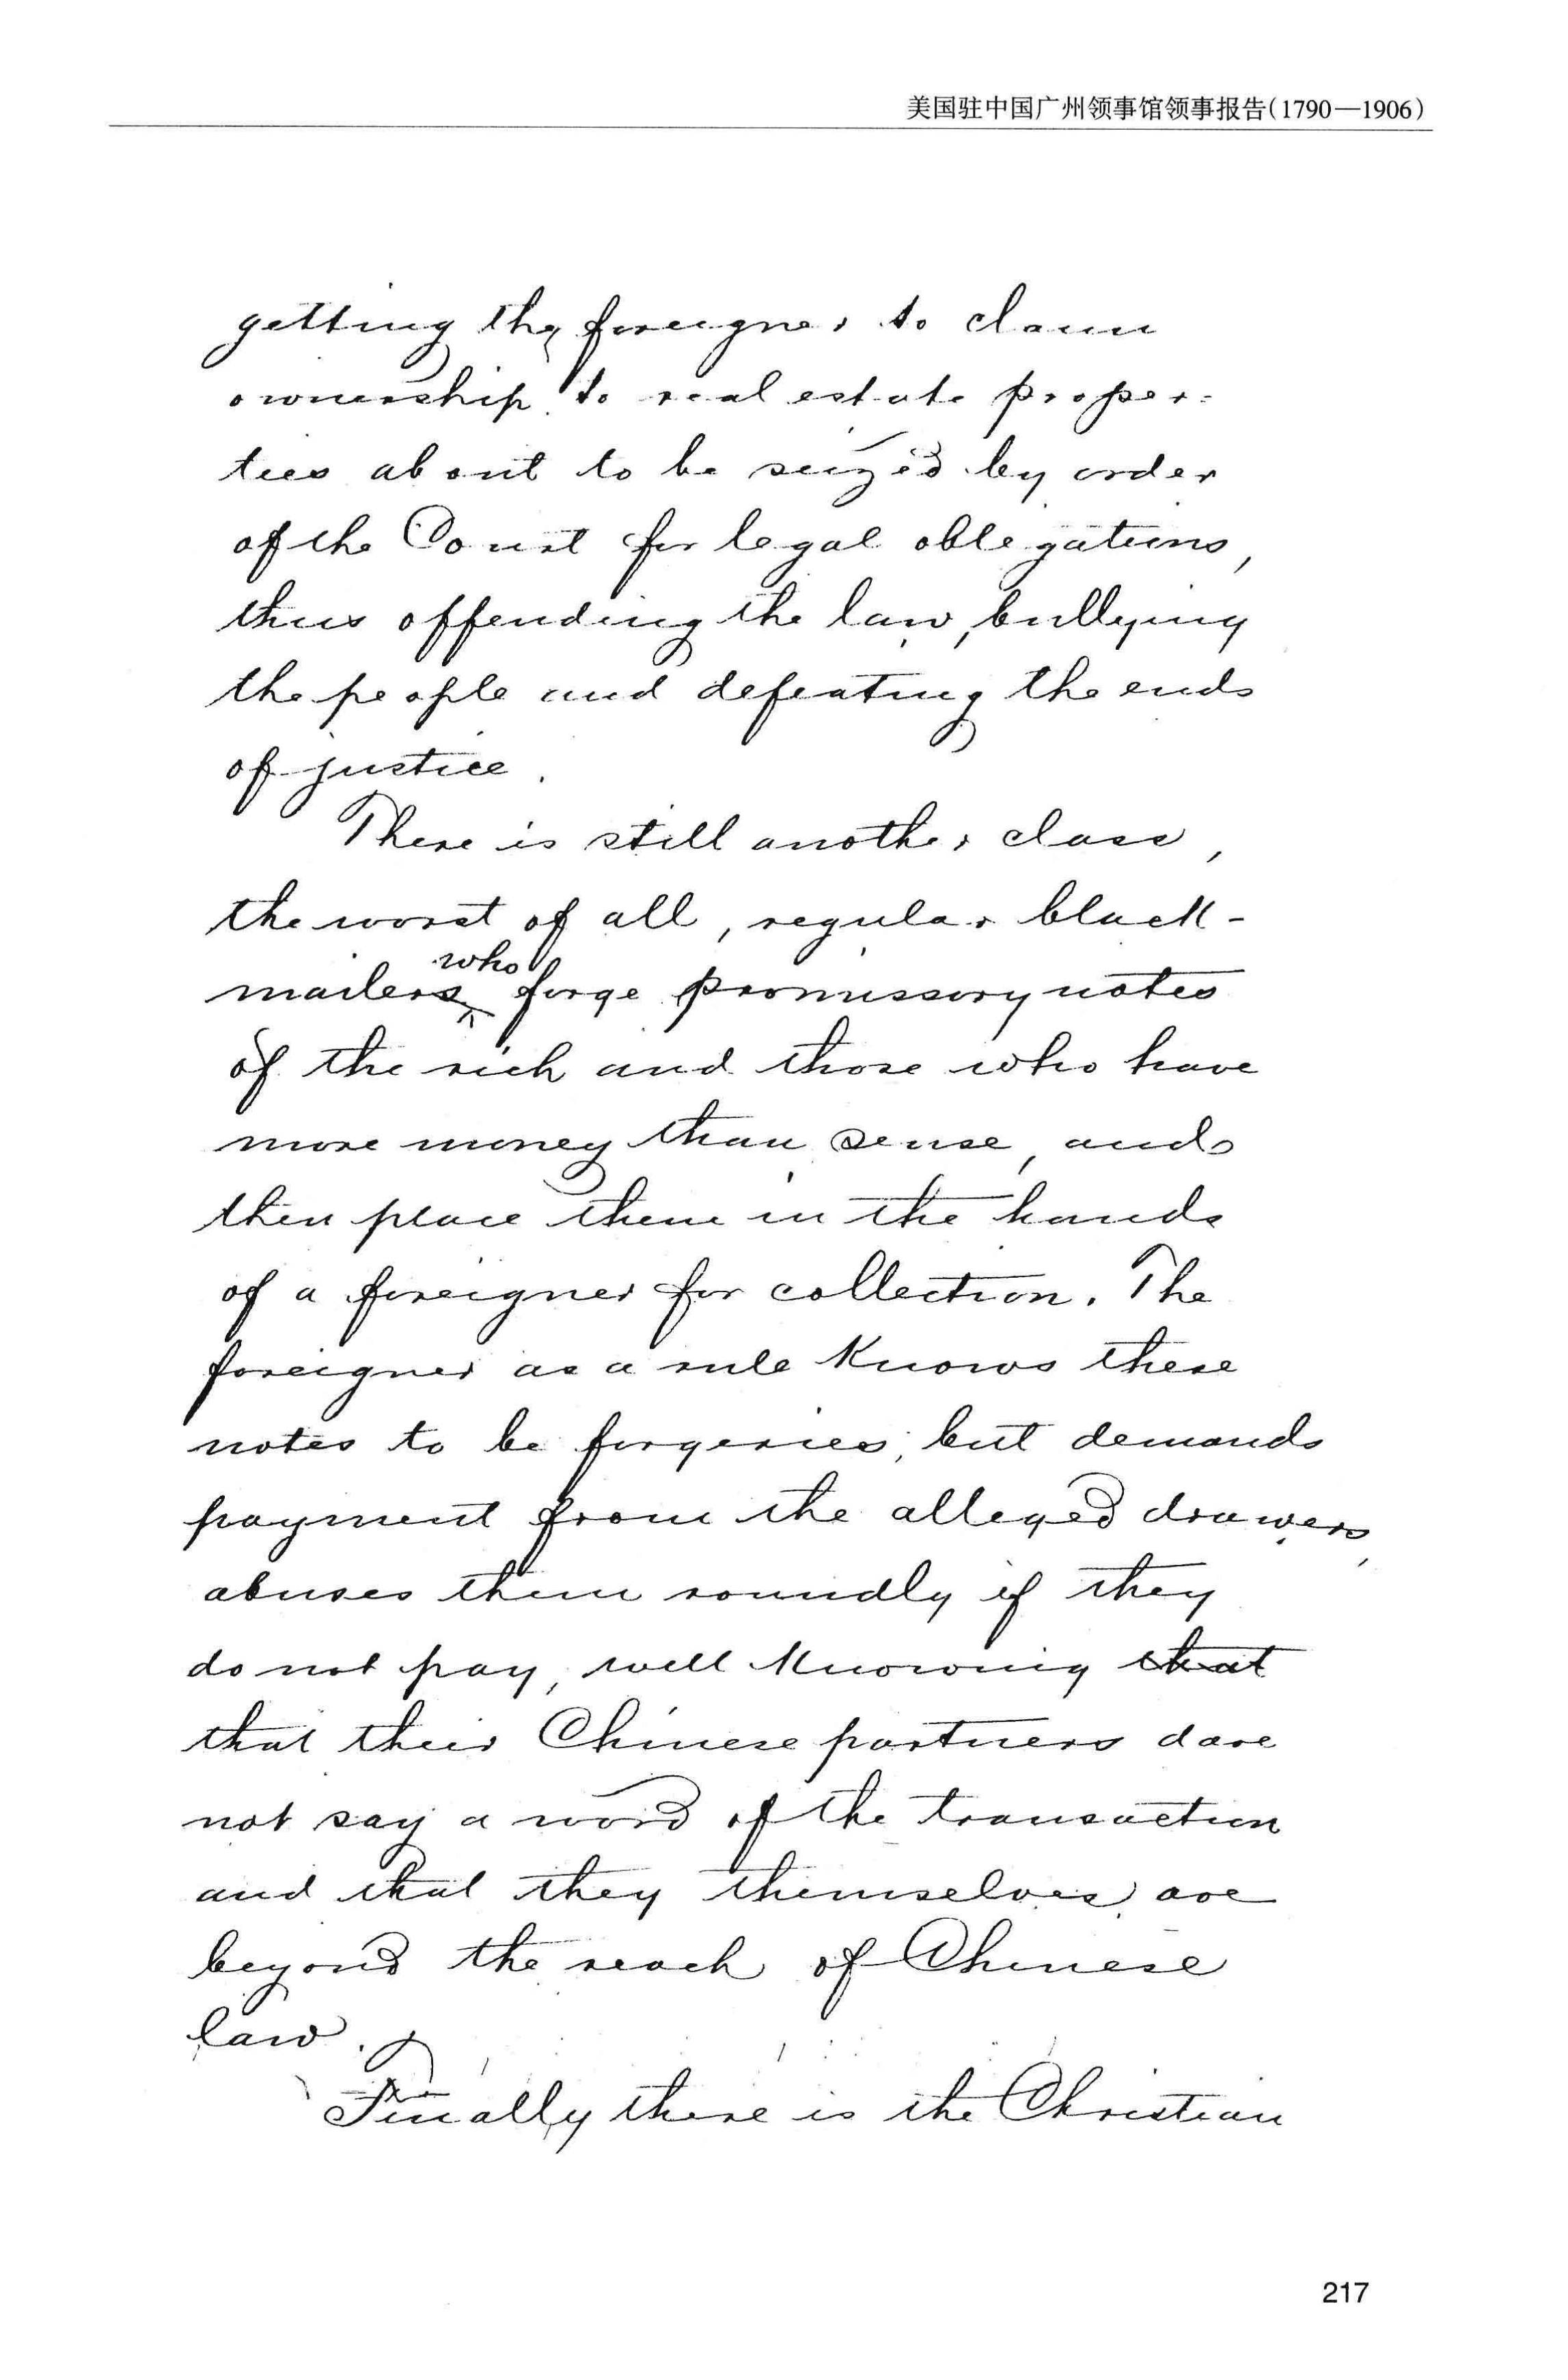 美国驻中国广州领事馆领事报告(1790—1906)
getting the foreigner to claim
ownership to real estate proper-
ties about to be seized by order
of the Court for legal obligations,
thus offending the law, bullying
the people and defeating the ends
of justice.
There is still another class,
the worst of all, regular black-
mailers who forge promissory notes
of the rich and those who have
more money than sense, and
then place them in the hands
of a foreigner for collection. The
foreigner as a rule knows these
notes to be forgeries, but demands
payment from the alleged drawers,
abuses them roundly if they
do not pay, well knowing that
that their Chinese partners dare
not say a word of the transaction
and that they themselves are
beyond the reach of Chinese
law.
Finally there is the Christian
217